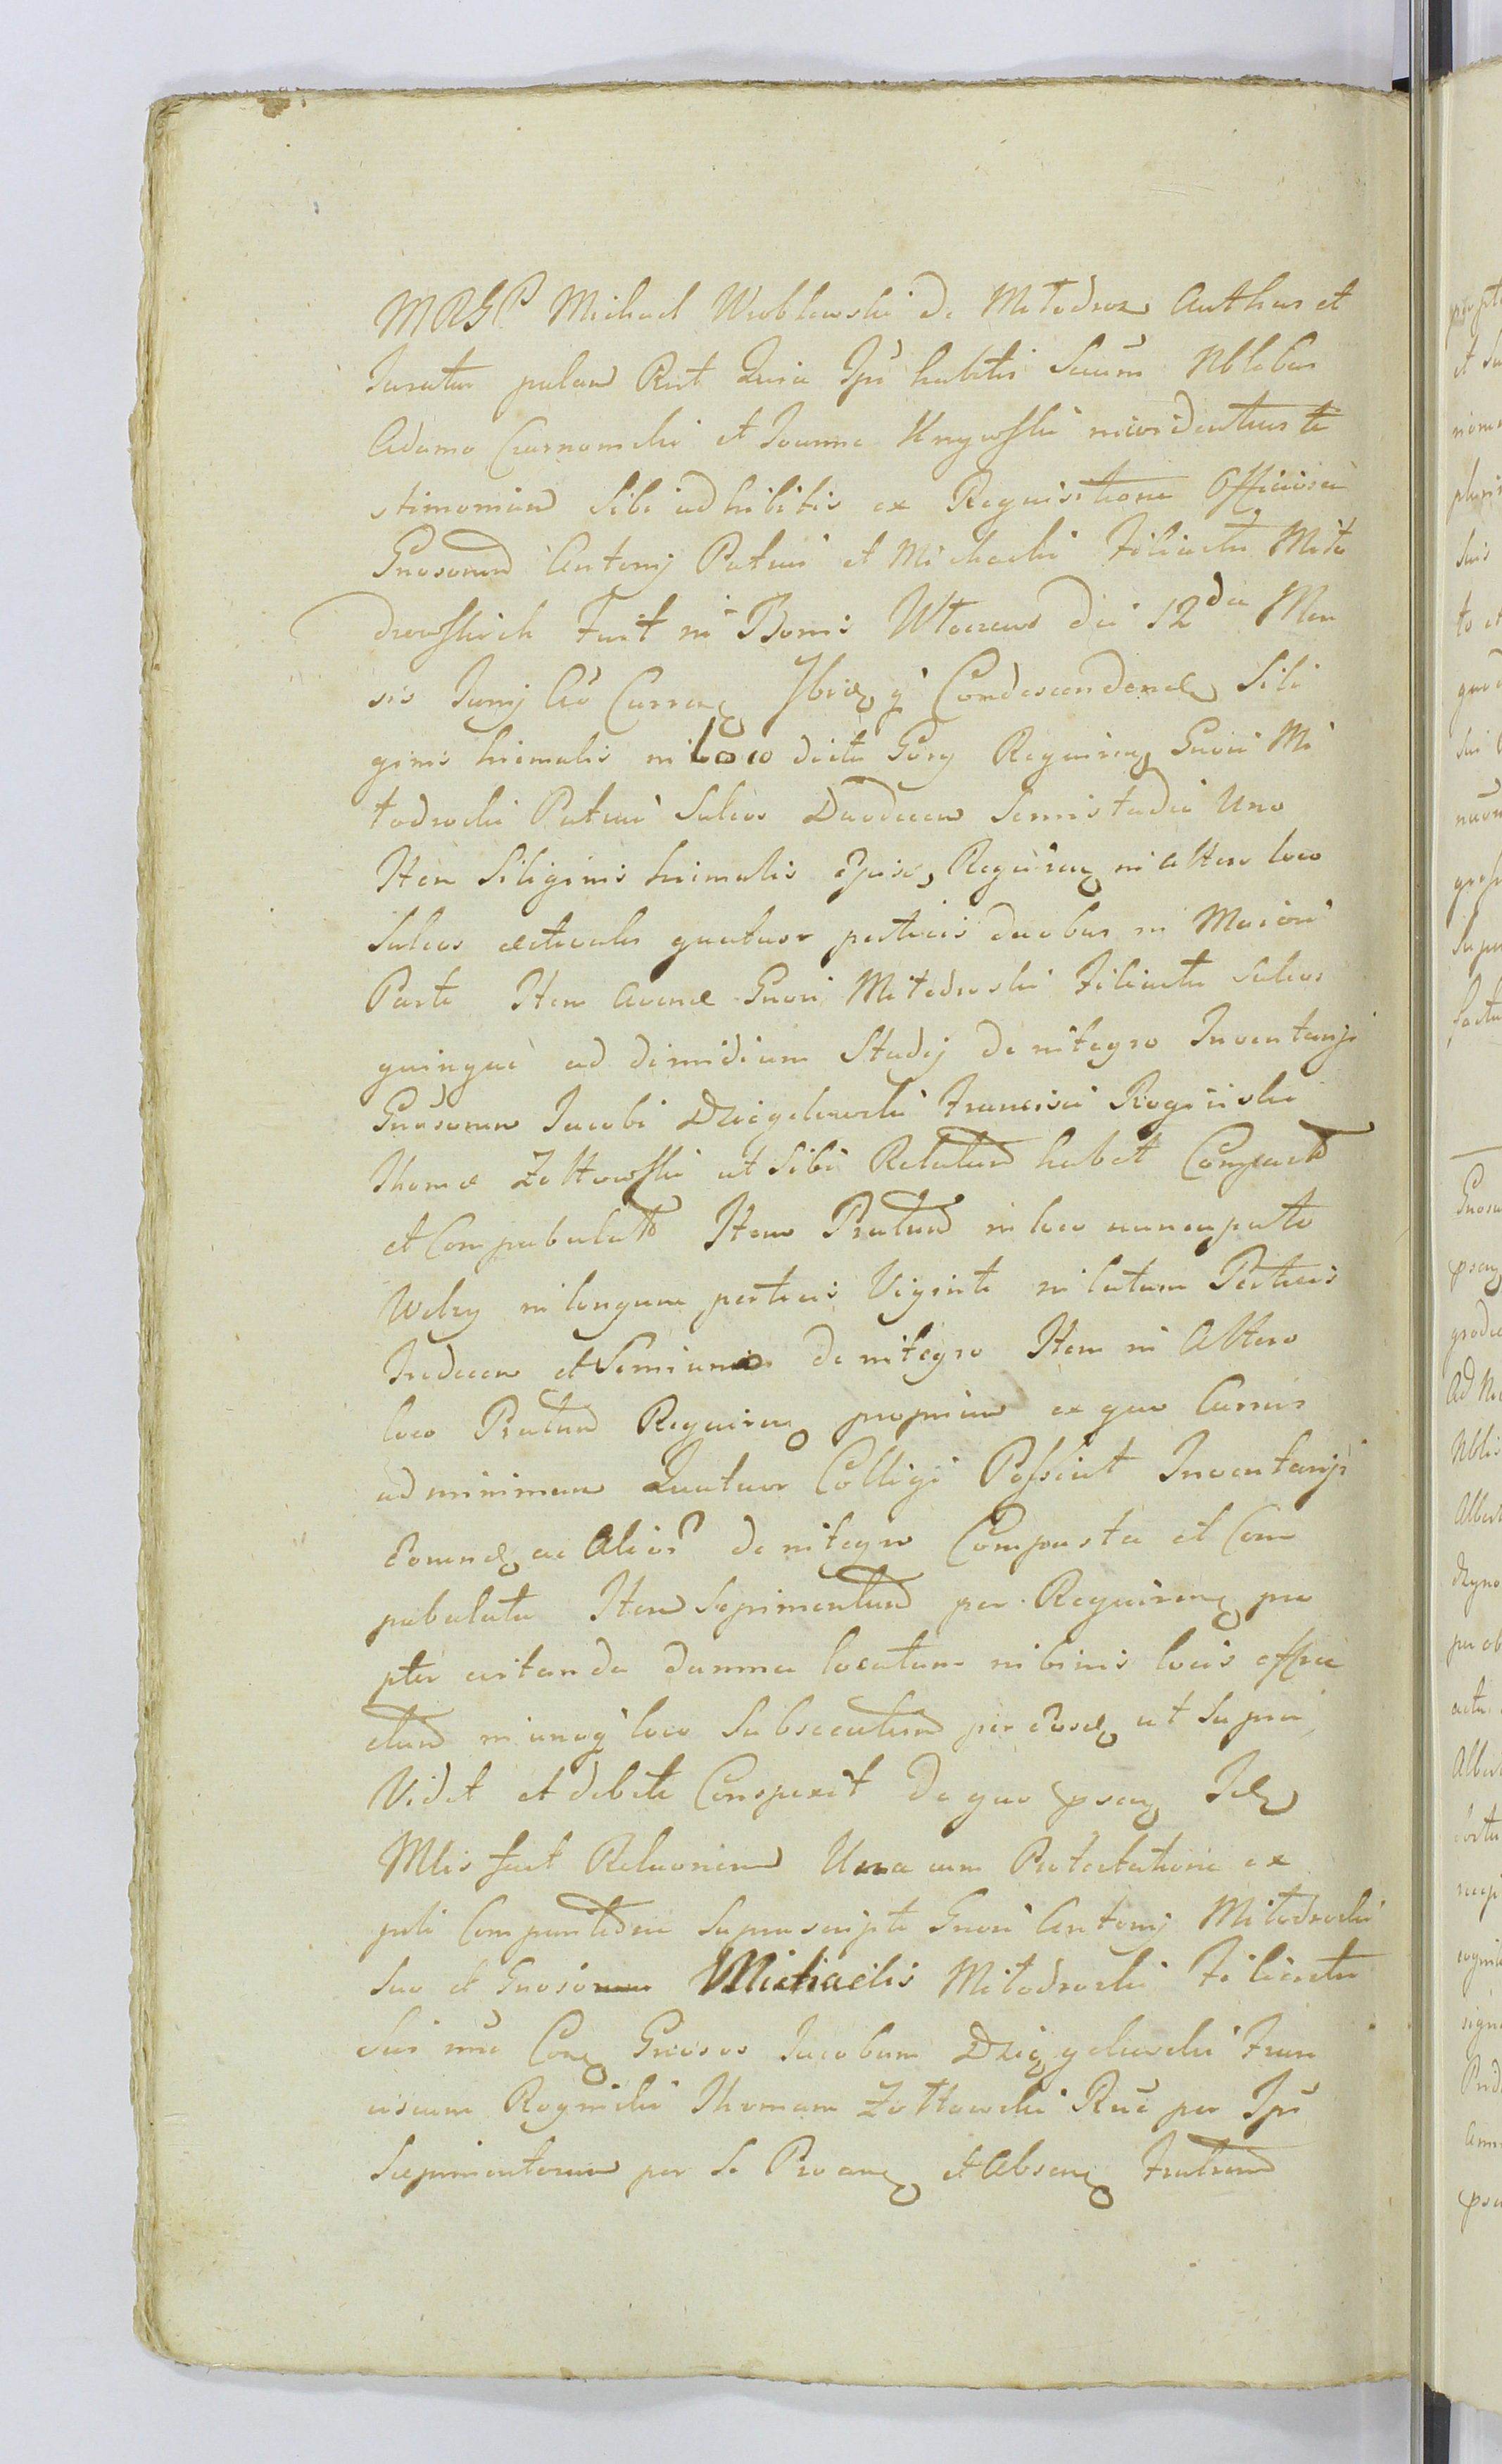 MRGP Michael Wroblewski de Mitodroz Authus et
Juratus palam Rēt Quia Ipē habitis Secum Nblbus
Adamo Czarnomski et Joanne Knyowski in evidentius te
stimonium Sibi adhibitis ex Requisitione Officiosa
Gnosorum Antonij Patrui et Michaelis Filiastri Mito
drowskich Fuit in Bonis Wtoczewo die 12da Men
sis Junij Aō Curren Ibidq q Condescendend Sili
ginis hiemalis in loco dicto Gory Requiren Gnōsi Mi
todroski Patrui Sulcos Duodecem Semistadio Uno
Item Siliginis hiemalis ejusd Requiren in altero loco
Sulcos quatuor perticis duobus in Maiori
Parte Item Avenæ Gnosi Mitodroski Filiastri Sulcos
quinque ad dimidium Stadij de integro Inventarijs
Gnosorum Jacobi Dzięgelewski Francisci Roginski
Thomæ Zołtowski ut Sibi Relatum habet Compact
et Compabulat Item Pratum in loco nuncupato
Welzy in longum perticis Viginti in latum Perticis
Tredecem et Semiuno de integro Item in Altero
loco Pratum Requiren proprium ex quo Currus
ad minimum Quatuor Colligi Possent Inventarijs
eorund ac Alior de integro Compasta et Com
pabulata Item Sepimentum per Requiren pro
pter evitanda damna locatum in binis locis effra
ctum in unoq loco Subsecutum per Eosd ut Supra
Vidit et debite Conspexit de quo psen Ide
Mlis facit Relaonem Una cum Protestatione ex
psti Comparitione Suprascripti Gnosi Antonij Mitodroski
Suo et Gnosi Michaelis Mitodroski Filiastri
Sui nnē Con Gnosos Jacobum Dzięgelewski Fran
ciscum Roginski Thomam Zołtowski Rnē per Ips
Sæpimentorum per Se Proan et Absen Fratrum